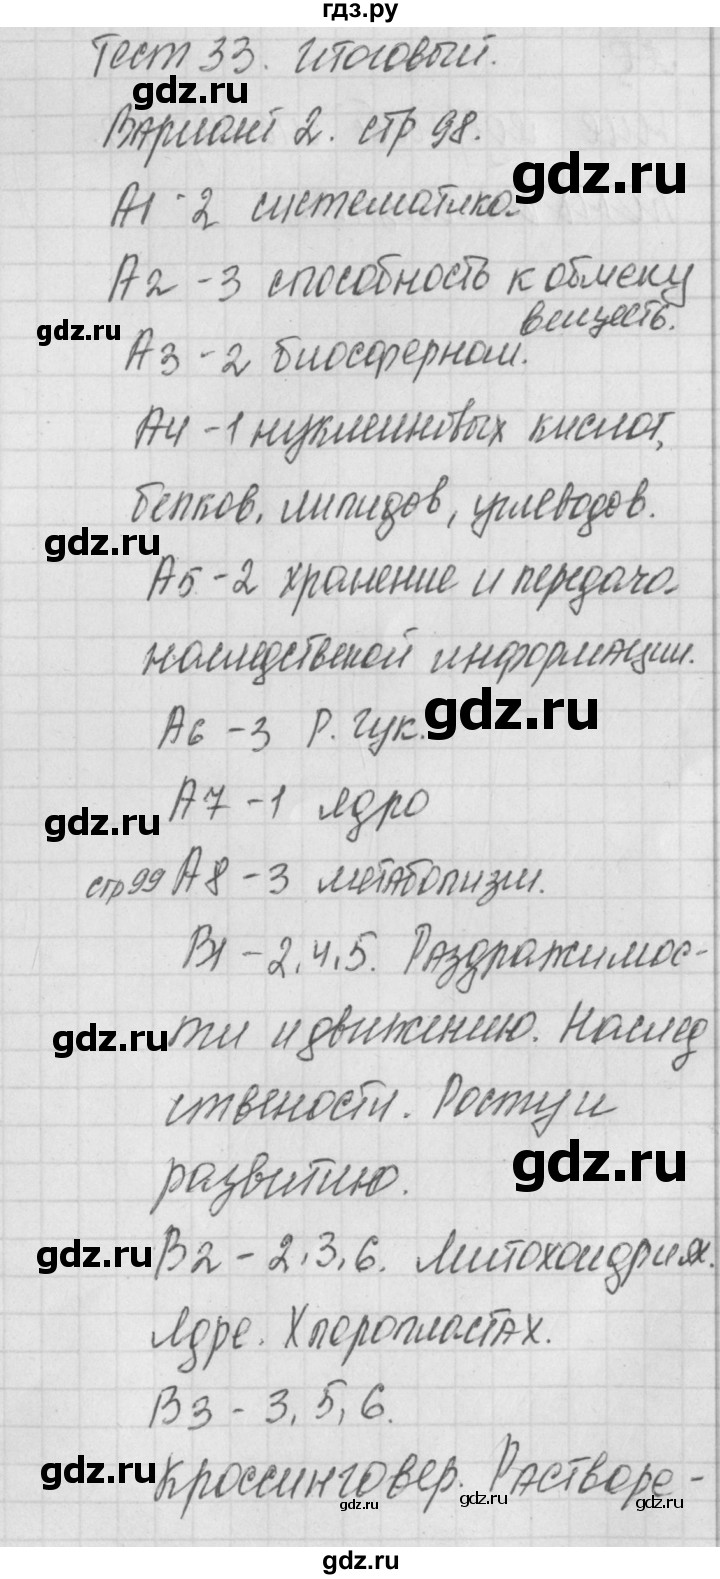 гдз.ру
Тест 33. Итоговый.
gdz.ru
Вариант 2. стр 98.
gdz.ru
А1 - 2 систематика.
А2 - 3 способность к обмену
веществ.
gdz.ru
А3 - 2 биосферном.
А4 - 1 нуклеиновых кислот,
белков, липидов, углеводов.
gdz.ru
А5 - 2 хранение и передача
наследственой информации.
gdz.ru
А6 - 3 Р. Гук.
А7 - 1 ядро
gdz.ru
стр 99 А8 - 3 метаболизм.
В1 - 2,4,5. Раздражимос-
gdz.ru
ти и движению. Наслед
ствености. Росту и
gdz.ru
развитию.
gdz.ru
В2 - 2,3,6. Митохондриях.
Ядре. Хлоропластах.
В3 - 3,5,6.
gdz.ru
Кроссинговер. Растворе-
gdz.ru
gdz.ru
gdz.ru
gdz.ru